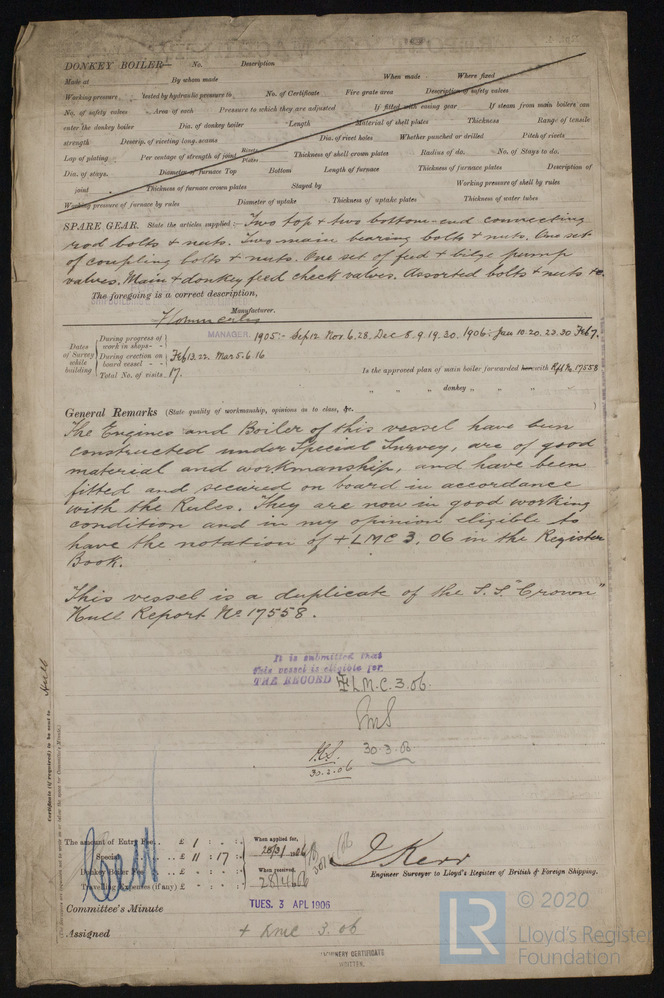 DONKEY BOILER— No. Description
Made at By whom made When made Where fixed
Working pressure tested by hydraulic pressure to No. of Certificate Fire grate area Description of safety valves
No. of safety valves Area of each Pressure to which they are adjusted If fitted with easing gear If steam from main boilers can
enter the donkey boiler Dia. of donkey boiler Length Material of shell plates Thickness Range of tensile
strength Descrip. of riveting long. seams Dia. of rivet holes Whether punched or drilled Pitch of rivets
Lap of plating Per centage of strength of joint Rivets Plates Thickness of shell crown plates Radius of do. No. of Stays to do.
Dia. of stays. Diameter of furnace Top Bottom Length of furnace Thickness of furnace plates Description of
joint Thickness of furnace crown plates Stayed by Working pressure of shell by rules
Working pressure of furnace by rules Diameter of uptake Thickness of uptake plates Thickness of water tubes
SPARE GEAR. State the articles supplied:— Two top + two bottom-end connecting
rod bolts + nuts. Two main bearing bolts + nuts. One set
of coupling bolts + nuts. One set of feed + bilge pump
valves. Main + donkey feed check valves. Assorted bolts + nuts &c.
The foregoing is a correct description,
Manufacturer.
MANAGER.
Dates of Survey while building
During progress of work in shops - - 1905:- Sep 12. Nov 6. 28. Dec 8. 9. 19. 30. 1906: Jan 10. 20. 23. 30 Feb 7.
During erection on board vessel - - Feb 13. 22. Mar 5. 6. 16
Total No. of visits 17. Is the approved plan of main boiler forwarded here with Rpt No 17558
" " donkey " " "
General Remarks (State quality of workmanship, opinions as to class, &c.
The Engines and Boiler of this vessel have been
constructed under Special Survey, are of good
material and workmanship, and have been
fitted and secured on board in accordance
with the Rules. They are now in good working
condition and in my opinion eligible to
have the notation of + LMC 3. 06 in the Register
Book.
This vessel is a duplicate of the S.S. "Crown"
Hull Report No 17558.
It is submitted that
this vessel is eligible for
THE RECORD + L.M.C. 3.06.
30.3.06
30.3.06
Certificate (if required) to be sent to Hull
The amount of Entry Fee . . £ 1 : - : When applied for,
Special £ 11 : 17 : 28/3/1906
Donkey Boiler Fee £ : : When received,
Travelling Expenses (if any) £ : : 28/4/06
J. Kerr
Engineer Surveyor to Lloyd's Register of British & Foreign Shipping.
Committee's Minute TUES. 3 APL 1906
Assigned + LMC 3. 06
MACHINERY CERTIFICATE
WRITTEN.
LR © 2020
Lloyd's Register
Foundation